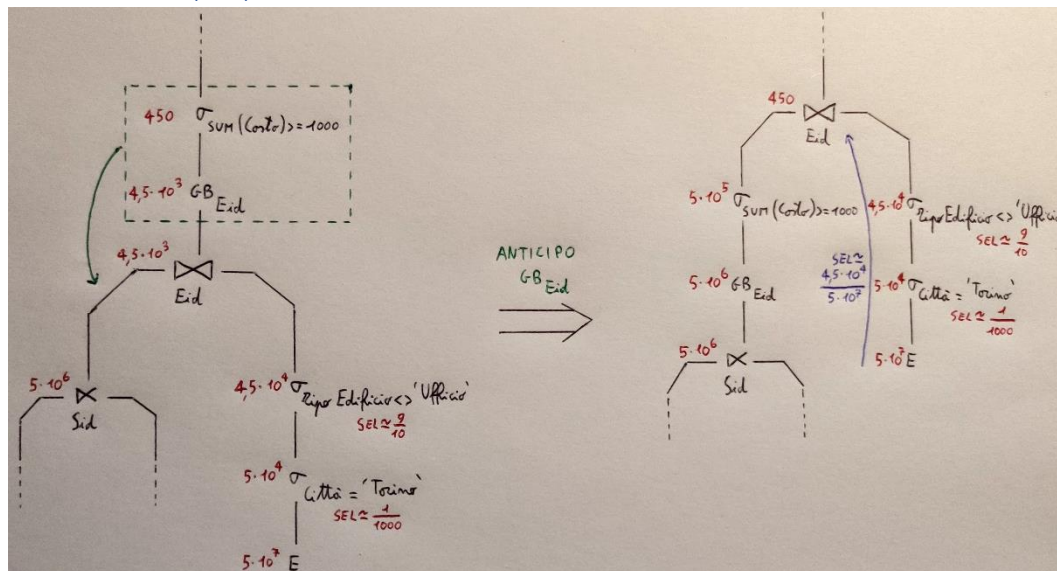 450 σ SUM(Costo)>=1000
4,5·10³ GB Eid
4,5·10³ ⋈
Eid
5·10⁶ ⋈
Sid
4,5·10⁴ σ Tipo Edificio <> 'Ufficio'
SEL ≃ 9/10
5·10⁴ σ Città = 'Torino'
SEL ≃ 1/1000
5·10⁷ E
ANTICIPO
GB Eid
450 ⋈
Eid
5·10⁵ σ SUM(Costo)>=1000
5·10⁶ GB Eid
5·10⁶ ⋈
Sid
SEL ≃
4,5·10⁴/5·10⁷
4,5·10⁴ σ Tipo Edificio <> 'Ufficio
SEL ≃ 9/10
5·10⁴ σ Città = 'Torino'
SEL ≃ 1/1000
5·10⁷ E